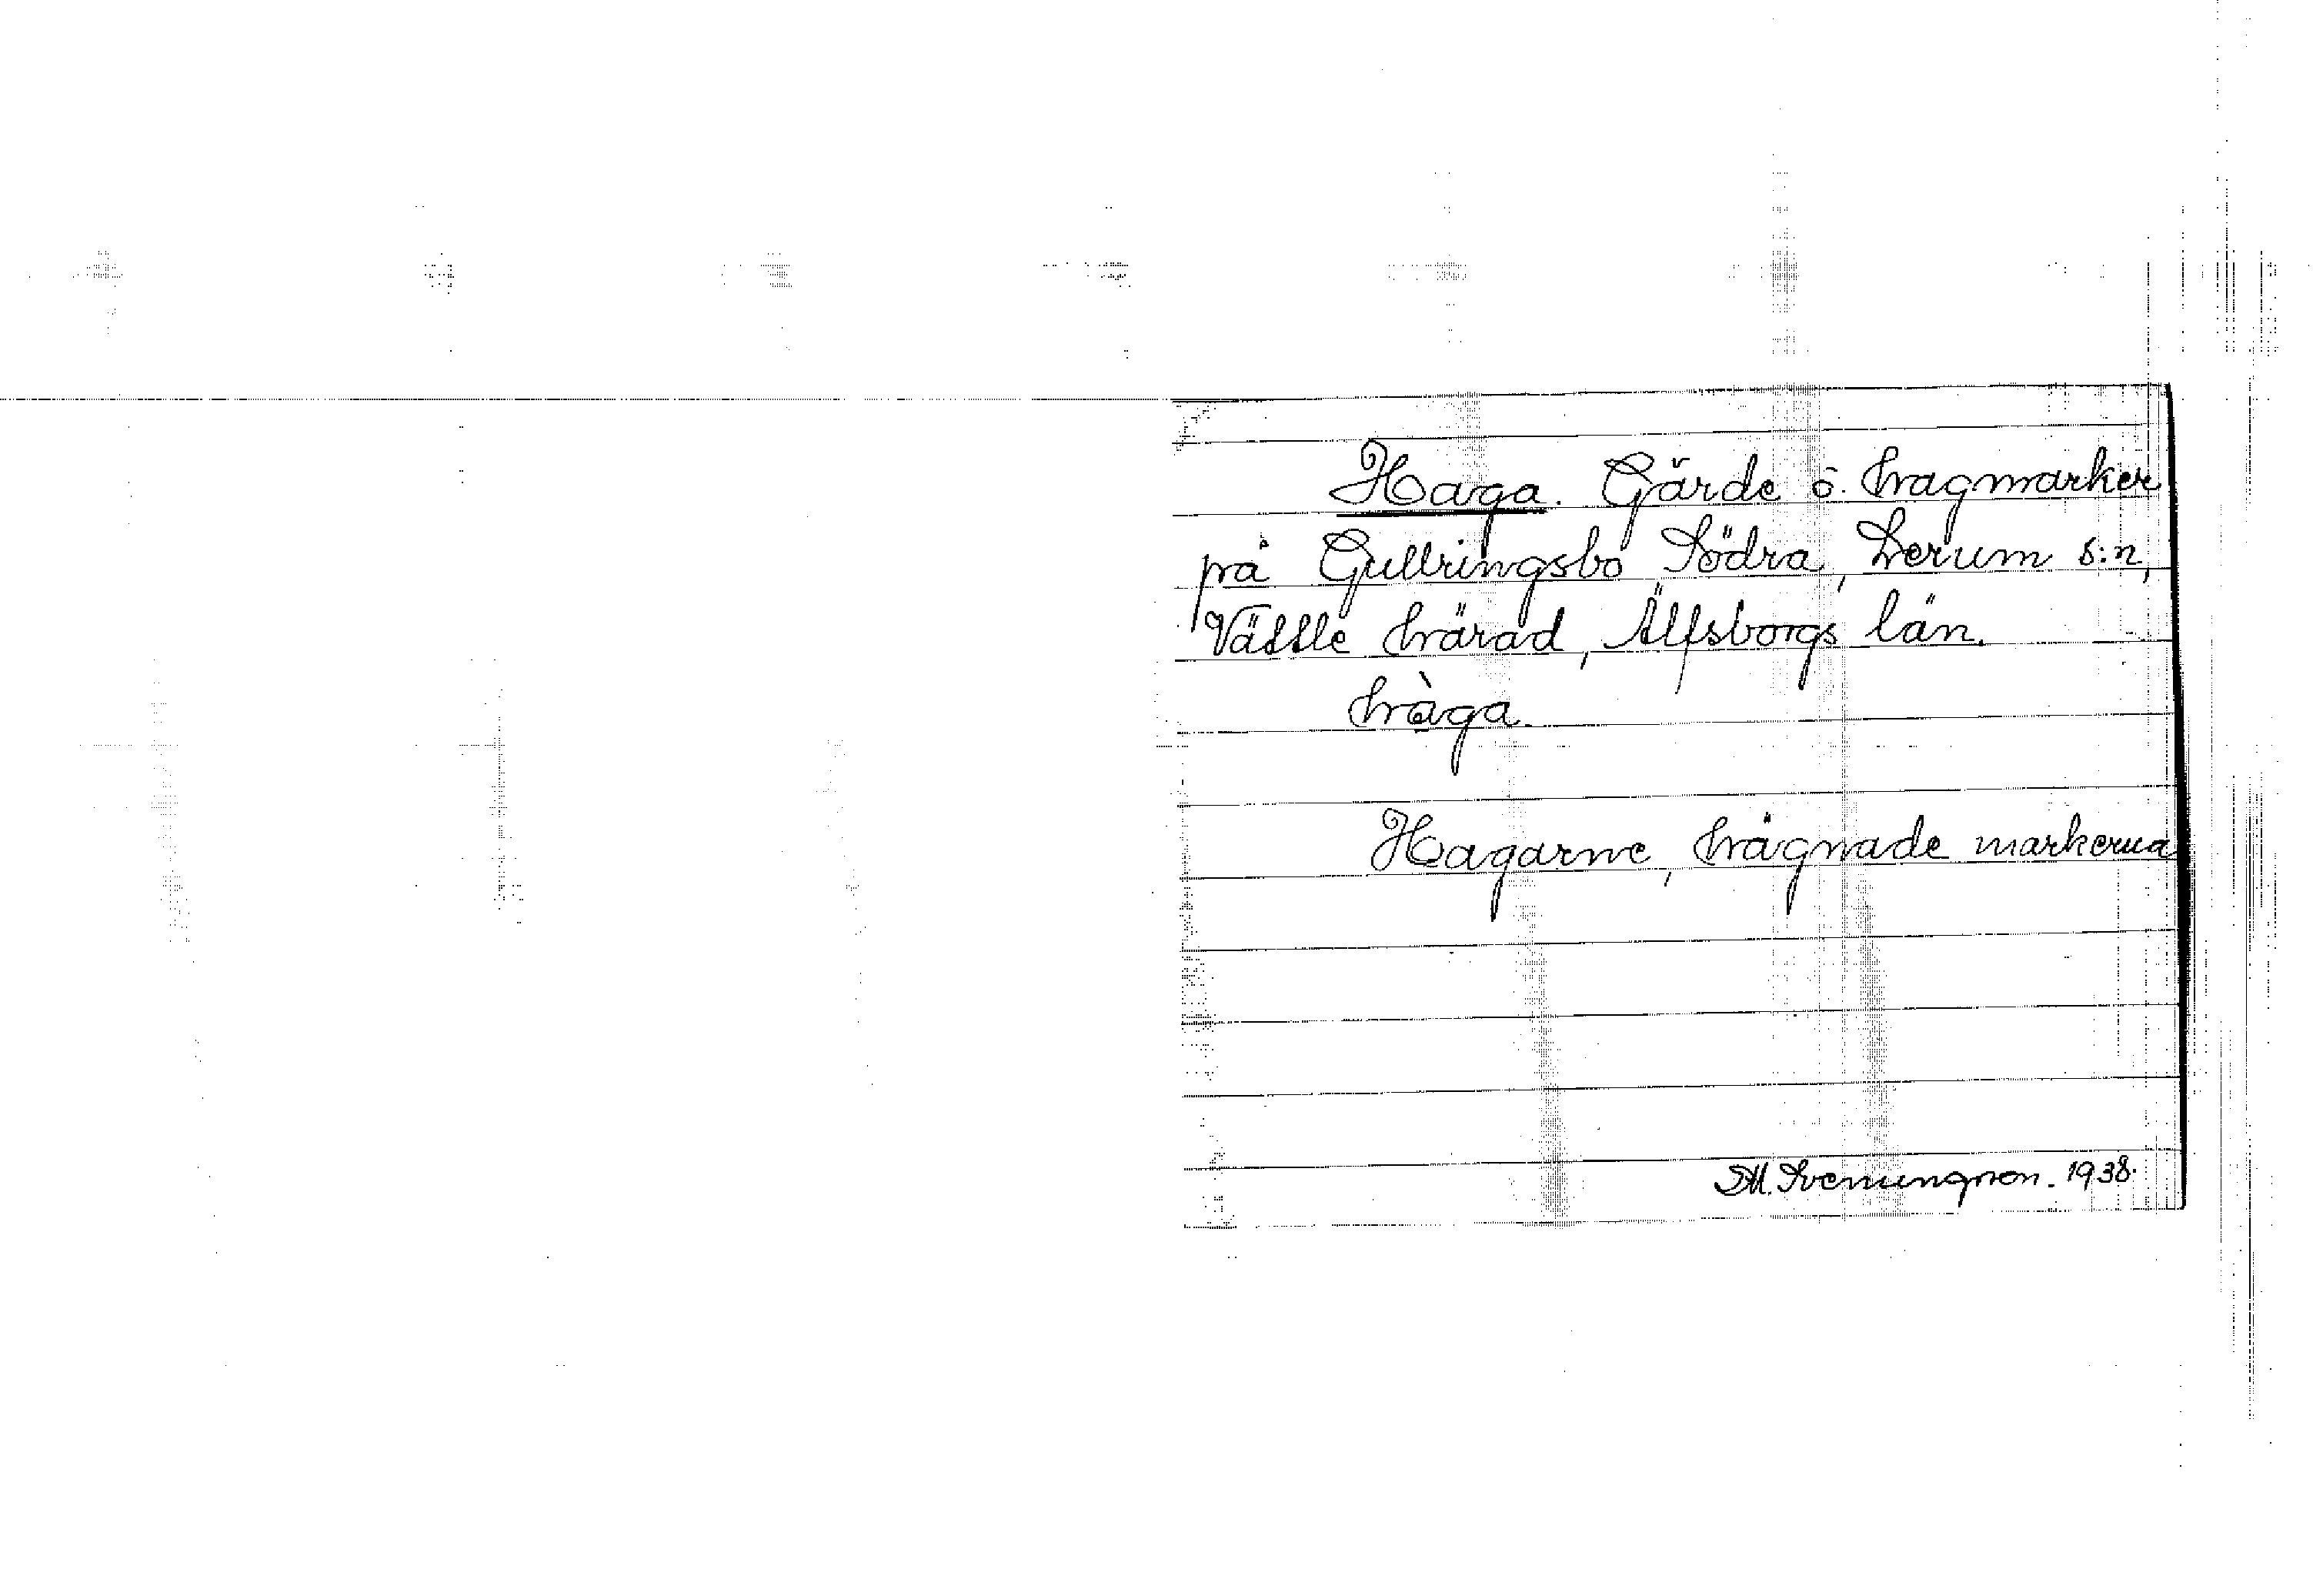 Haga. Gärde o. hagmarker
på Gullringsbo Södra, Lerum s:n,
Vättle härad, Älfsborgs län.
hàga.
Hagarne, hägnade markerna
M. Svenungson. 1938.